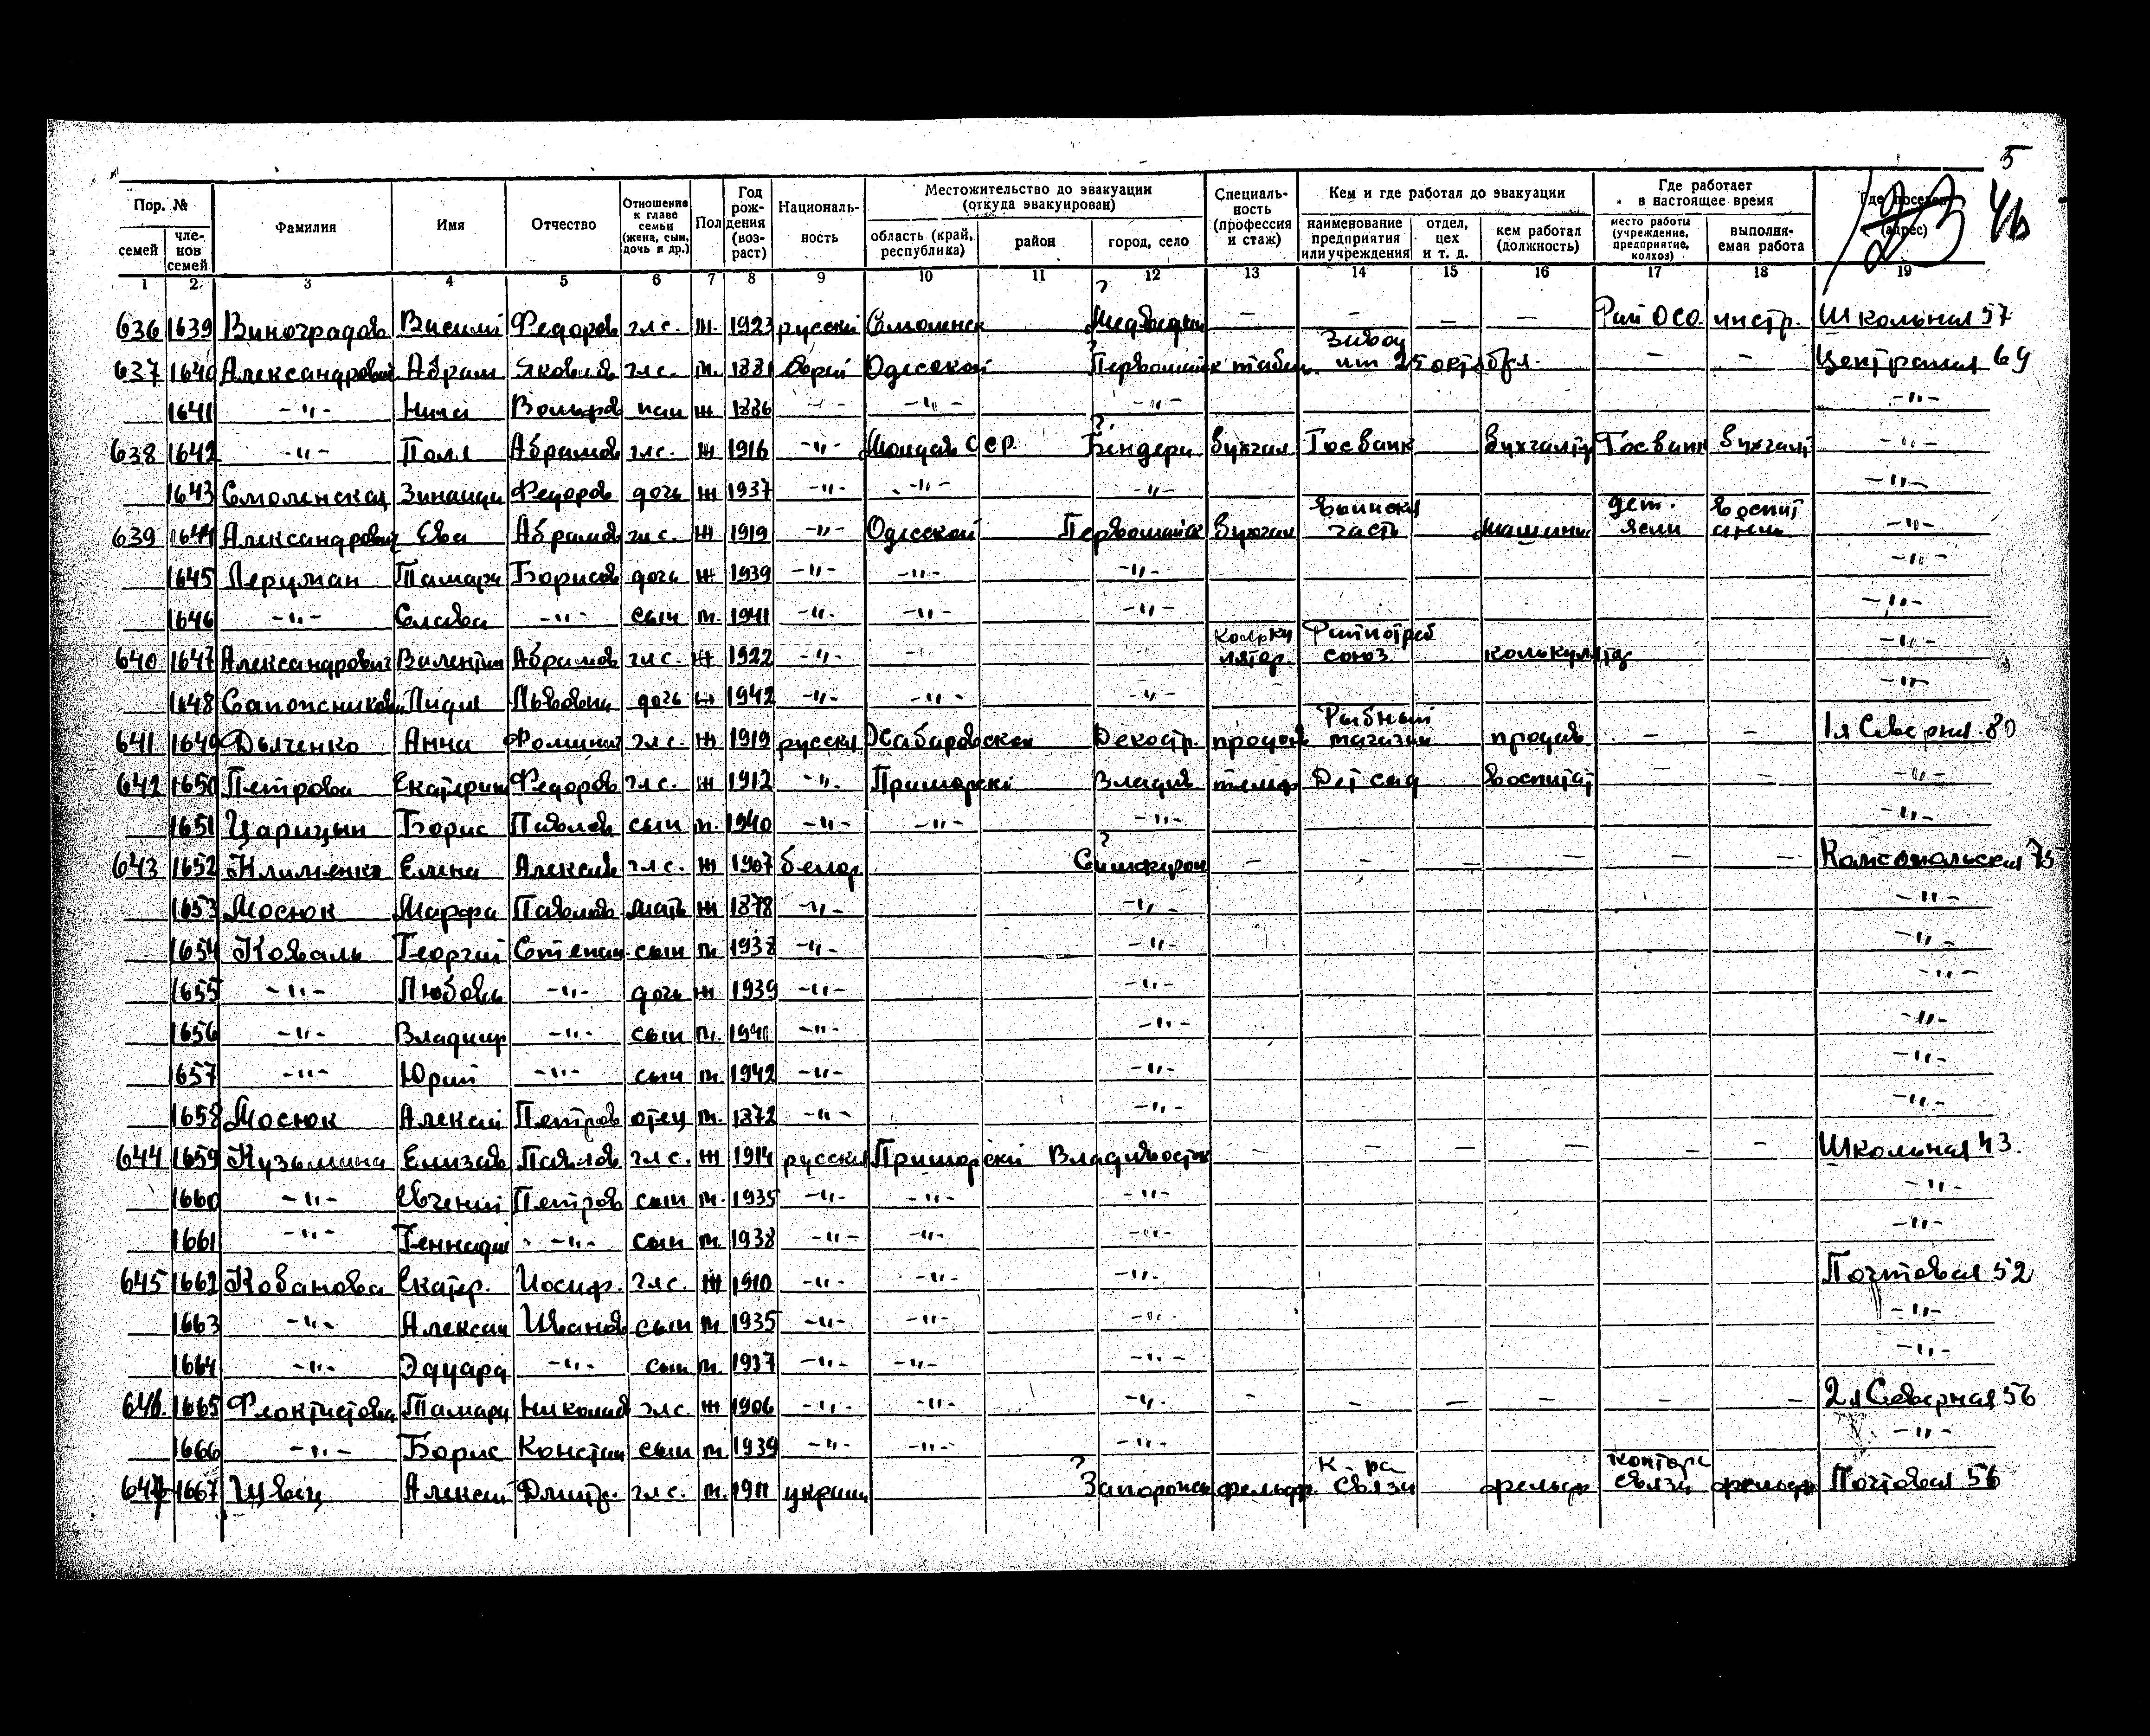 5
46
23
Пор. №
семей
членов семей
Фамилия
Имя
Отчество
Отношение к главе семьи (жена, сын, дочь и др.)
Пол
Год рождения (возраст)
Националь-
ность
Местожительство до эвакуации (откуда эвакуирован)
область (край, республика)
район
город, село
Специаль-
ность (профессия и стаж)
Кем и где работал до эвакуации
наименование предприятия или учреждения
отдел, цех и т. д.
кем работал (должность)
Где работает в настоящее время
место работы (учреждение, предприятие, колхоз)
выполня-
емая работа
Где поселен (адрес)
1 2 3 4 5 6 7 8 9 10 11 12 13 14 15 16 17 18 19
636 1639 Виноградов Василий Федоров гл с. м. 1923 русский Смоленск ? — — — — Рай ОСО инстр. Школьная 57
637 1640 Александрович Абрам Яковлев гл с. м. 1881 еврей Одесской ? Первомайск табел. Завод им 25 октября. — — Централья 69
1641 -"- Вольфов ж 1886 -"- -"- -"- -"-
638 1642 -"- Полл Абрамов гл с. ж 1916 -"- Молдав ССР. ? Бендеры бухгал Госбанк бухгалтер Госбанк бухгалт -"-
1643 Смоленская Зинаида Федоров дочь ж 1937 -"- -"- -"- -"-
639 1644 Александрович Ева Абрамов гл с. ж 1919 -"- Одесской Первомайск бухгал воинская часть машинис дет. ясли воспитатель -"-
1645 Лерулман Тамара Борисов дочь ж 1939 -"- -"- -"- -"-
1646 -"- Слава -"- сын м. 1941 -"- -"- -"- -"-
640 1647 Александрович Валентин Абрамов гл с. ж 1922 -"- -"- -"- калькулятор. Райпотреб союз. калькулятор -"-
1648 Сапожникова Лидия Львовна дочь ж 1942 -"- -"- -"- -"-
641 1649 Дьяченко Анна Фоминич гл с. ж 1919 русская Хабаровской Декастр. продав Рыбный магазин продав — — 1я Северная 80
642 1650 Петрова Екатерин Федоров гл с. ж 1912 -"- Приморский Владив Дет сад воспитат — — -"-
1651 Царицын Борис Павлов сын м. 1940 -"- -"- -"- -"-
643 1652 Клименко Елена Алексеев гл с. ж 1907 белор ? — — — — — — Комсомольская 75
1653 Мосюк Марфа Павлов мать ж 1878 -"- -"- -"-
1654 Коваль Георгий Степан. сын м. 1938 -"- -"- -"-
1655 -"- Любовь -"- дочь ж 1939 -"- -"- -"-
1656 -"- Владимир -"- сын м. 1940 -"- -"- -"-
1657 -"- Юрий -"- сын м. 1942 -"- -"- -"-
1658 Мосюк Алексей Петров отец м. 1872 -"- -"- -"-
644 1659 Кузьмина Елизав Павлов гл с. ж 1914 русская Приморский Владивосток — — — — — — Школьная 43.
1660 -"- Евгений Петров сын м. 1935 -"- -"- -"- -"-
1661 -"- Геннадий -"- сын м. 1938 -"- -"- -"- -"-
645 1662 Кобанова Екатер. Иосиф. гл с. ж 1910 -"- -"- -"- Почтовая 52
1663 -"- Алексан Иванов сын м. 1935 -"- -"- -"- -"-
1664 -"- Эдуард -"- сын м. 1937 -"- -"- -"- -"-
646. 1665 Феоктистова Тамара Николаев гл с. ж 1906 -"- -"- -"- — — — — — — 2я Северная 56
1666 -"- Борис Констан сын м. 1939 -"- -"- -"- -"-
647 1667 Швец Алексей Дмитр. гл с. м. 1911 украин ? Запорожск фельдъ. К-ра связи фельдъ контора связи фельдъ Почтовая 56